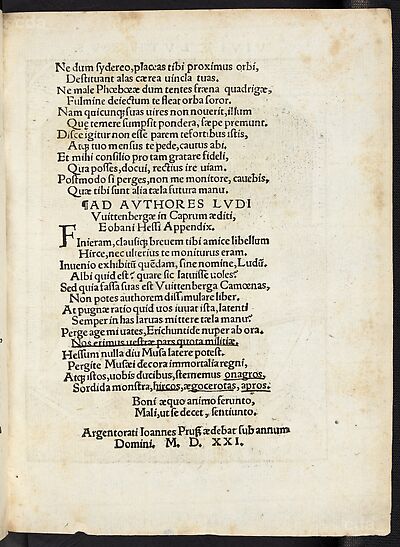 Ne dum sydereo, placeas tibi proximus orbi,
Destituant alas cærea uincla tuas.
Ne male Phœbœæ dum tentes fræna quadrigæ,
Fulmine deiectum te fleat orba soror.
Nam quicunq; suas uires non nouerit, illum
Quę temere sumpsit pondera, sæpe premunt.
Disce igitur non esse parem tesortibus istis,
Atq; tuo mensus te pede, cautus abi.
Et mihi consilio pro tam gratare fideli,
Qua posses, docui, rectius ire uiam.
Postmodo si perges, non me monitore, cauebis,
Quæ tibi sunt alia tæla futura manu.
¶AD AVTHORES LVDI
Vuittenbergæ in Caprum æditi,
Eobani Hessi Appendix.
Finieram, clausiq; breuem tibi amice libellum
Hirce, nec ulterius te moniturus eram.
Inuenio exhibitū quēdam, sine nomine, Ludū.
Albi quid est? quare sic latuisse uoles?
Sed quia fassa suas est Vuittenberga Camœnas,
Non potes authorem dissimulare liber.
At pugnæ ratio quid uos iuuat ista, latenti
Semper in has laruas mittere tæla manu?
Perge age mi uates, Erichuntide nuper ab ora.
Nos erimus uestræ pars quota militiæ.
Hessum nulla diu Musa latere potest.
Pergite Musæi decora immortalia regni,
Atq; istos, uobis ducibus, sternemus onagros.
Sordida monstra, hircos, ægocerotas, apros.
Boni æquo animo ferunto,
Mali, ut se decet, sentiunto.
Argentorati Ioannes Pruß ædebat sub annum
Domini. M. D. XXI.